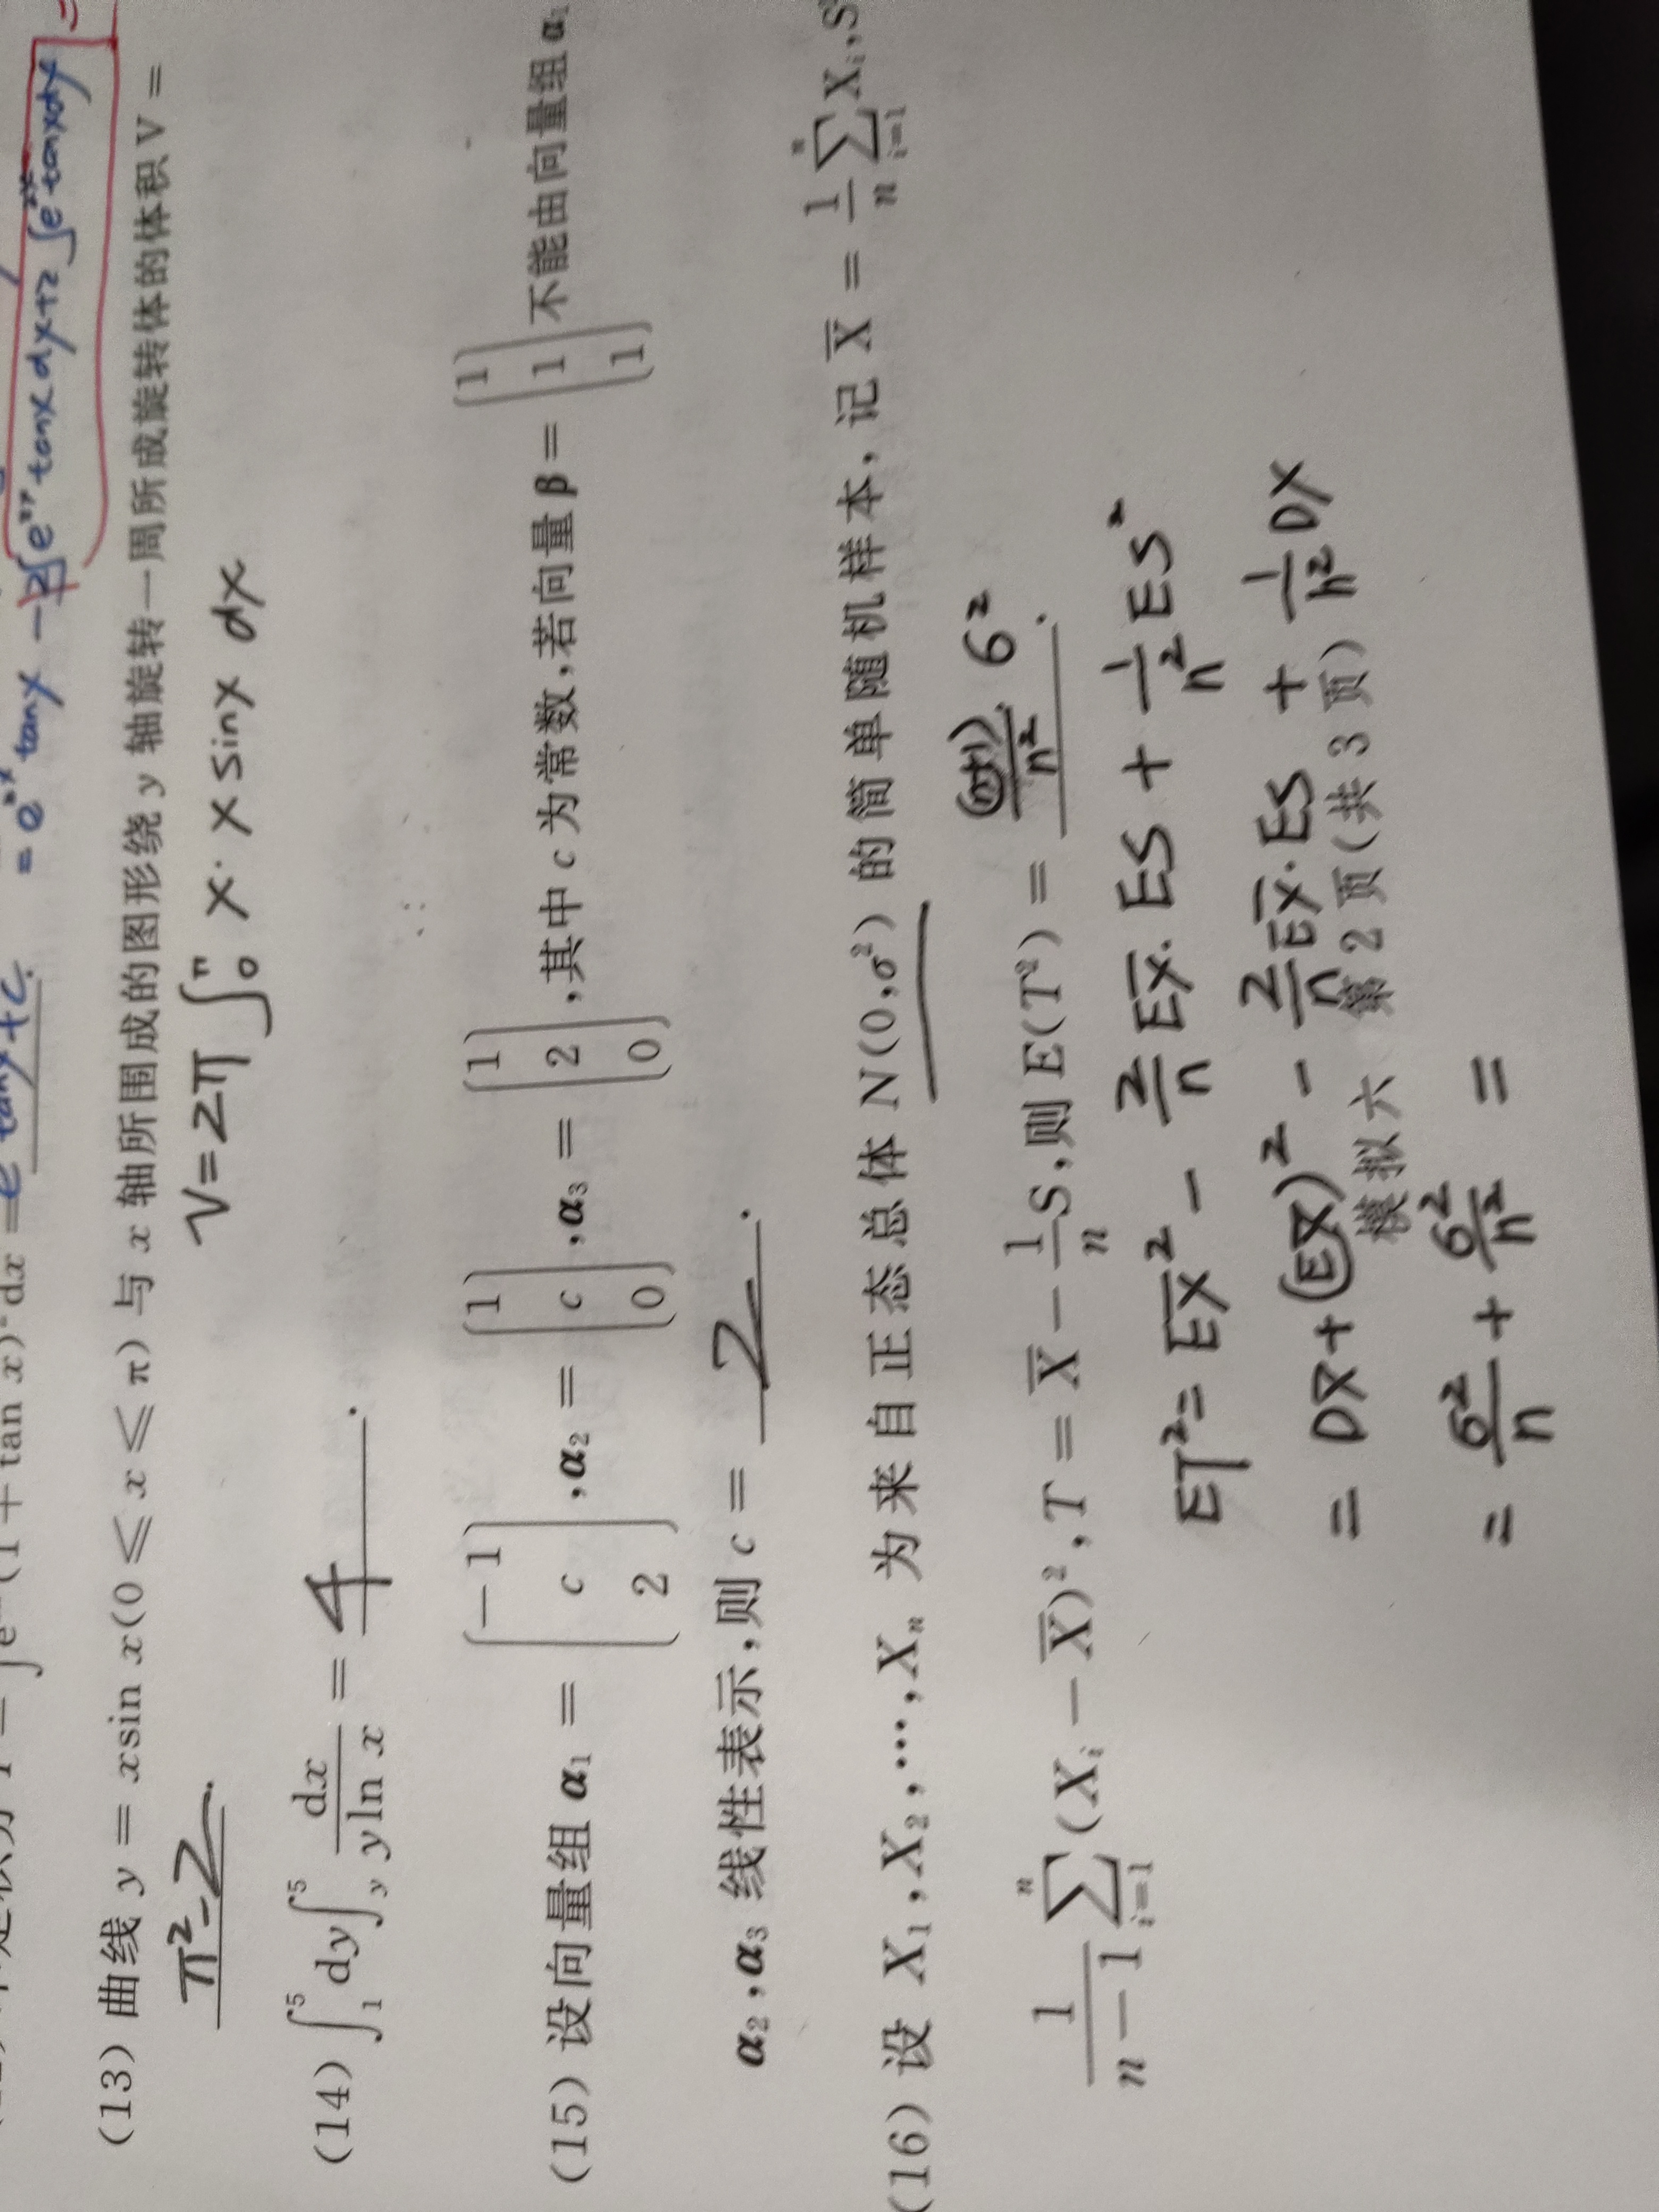 = e^{2x} tanx - 2∫e^{2x} tanx dx + 2∫e^{2x} tanxdx =
∫e (1 + tan x)² dx = e tanx + C.
(13) 曲线 y = xsin x(0 ⩽ x ⩽ π) 与 x 轴所围成的图形绕 y 轴旋转一周所成旋转体的体积 V =
π²-2.
V=2π∫₀^π x·x sinx dx
(14) ∫₁⁵ dy∫_y⁵ dx/(yln x) = 4.
(15) 设向量组 α₁ = (-1, c, 2), α₂ = (1, c, 0), α₃ = (1, 2, 0), 其中 c 为常数,若向量 β = (1, 1, 1) 不能由向量组 α₁
α₂,α₃ 线性表示,则 c = 2.
(16) 设 X₁,X₂,…,Xₙ 为来自正态总体 N(0,σ²) 的简单随机样本,记 X̄ = 1/n ∑_{i=1}^n Xᵢ,S
1/(n-1) ∑_{i=1}^n (Xᵢ - X̄)²,T = X̄ - 1/n S,则 E(T²) = (n+1)/n² · σ².
ET² = EX̄² - 2/n EX̄·ES + 1/n² ES²
= DX̄+(EX̄)² - 2/n EX̄·ES + 1/n² DX
模拟六 第 2 页(共 3 页)
= σ²/n + σ²/n² =